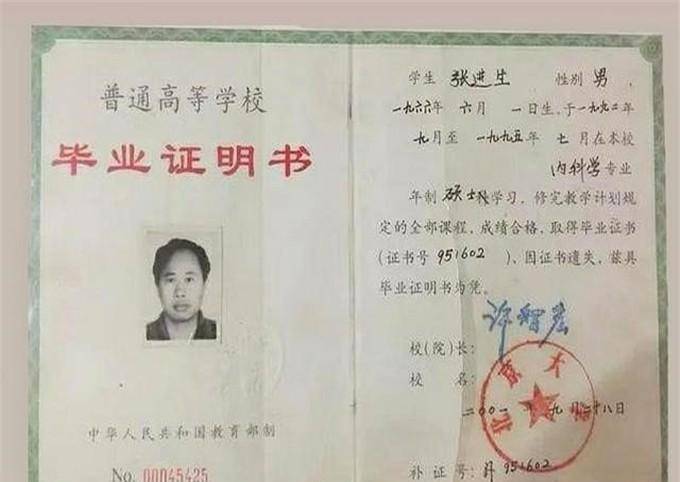 普通高等学校
毕业证明书
中华人民共和国教育部制
No. 00045425
学生 张进生 性别 男，
一九六六年 六月 一日生，于一九九二年
九月至 一九九五年 七月在本校
内科学专业
年制 硕士 学习，修完教学计划规
定的全部课程，成绩合格，取得毕业证书
(证书号 951602 )，因证书遗失，兹具
毕业证明书为凭。
许智宏
校(院)长：
校 名：
北京大学
二〇〇一 九月二十八日
补证号：补 951602